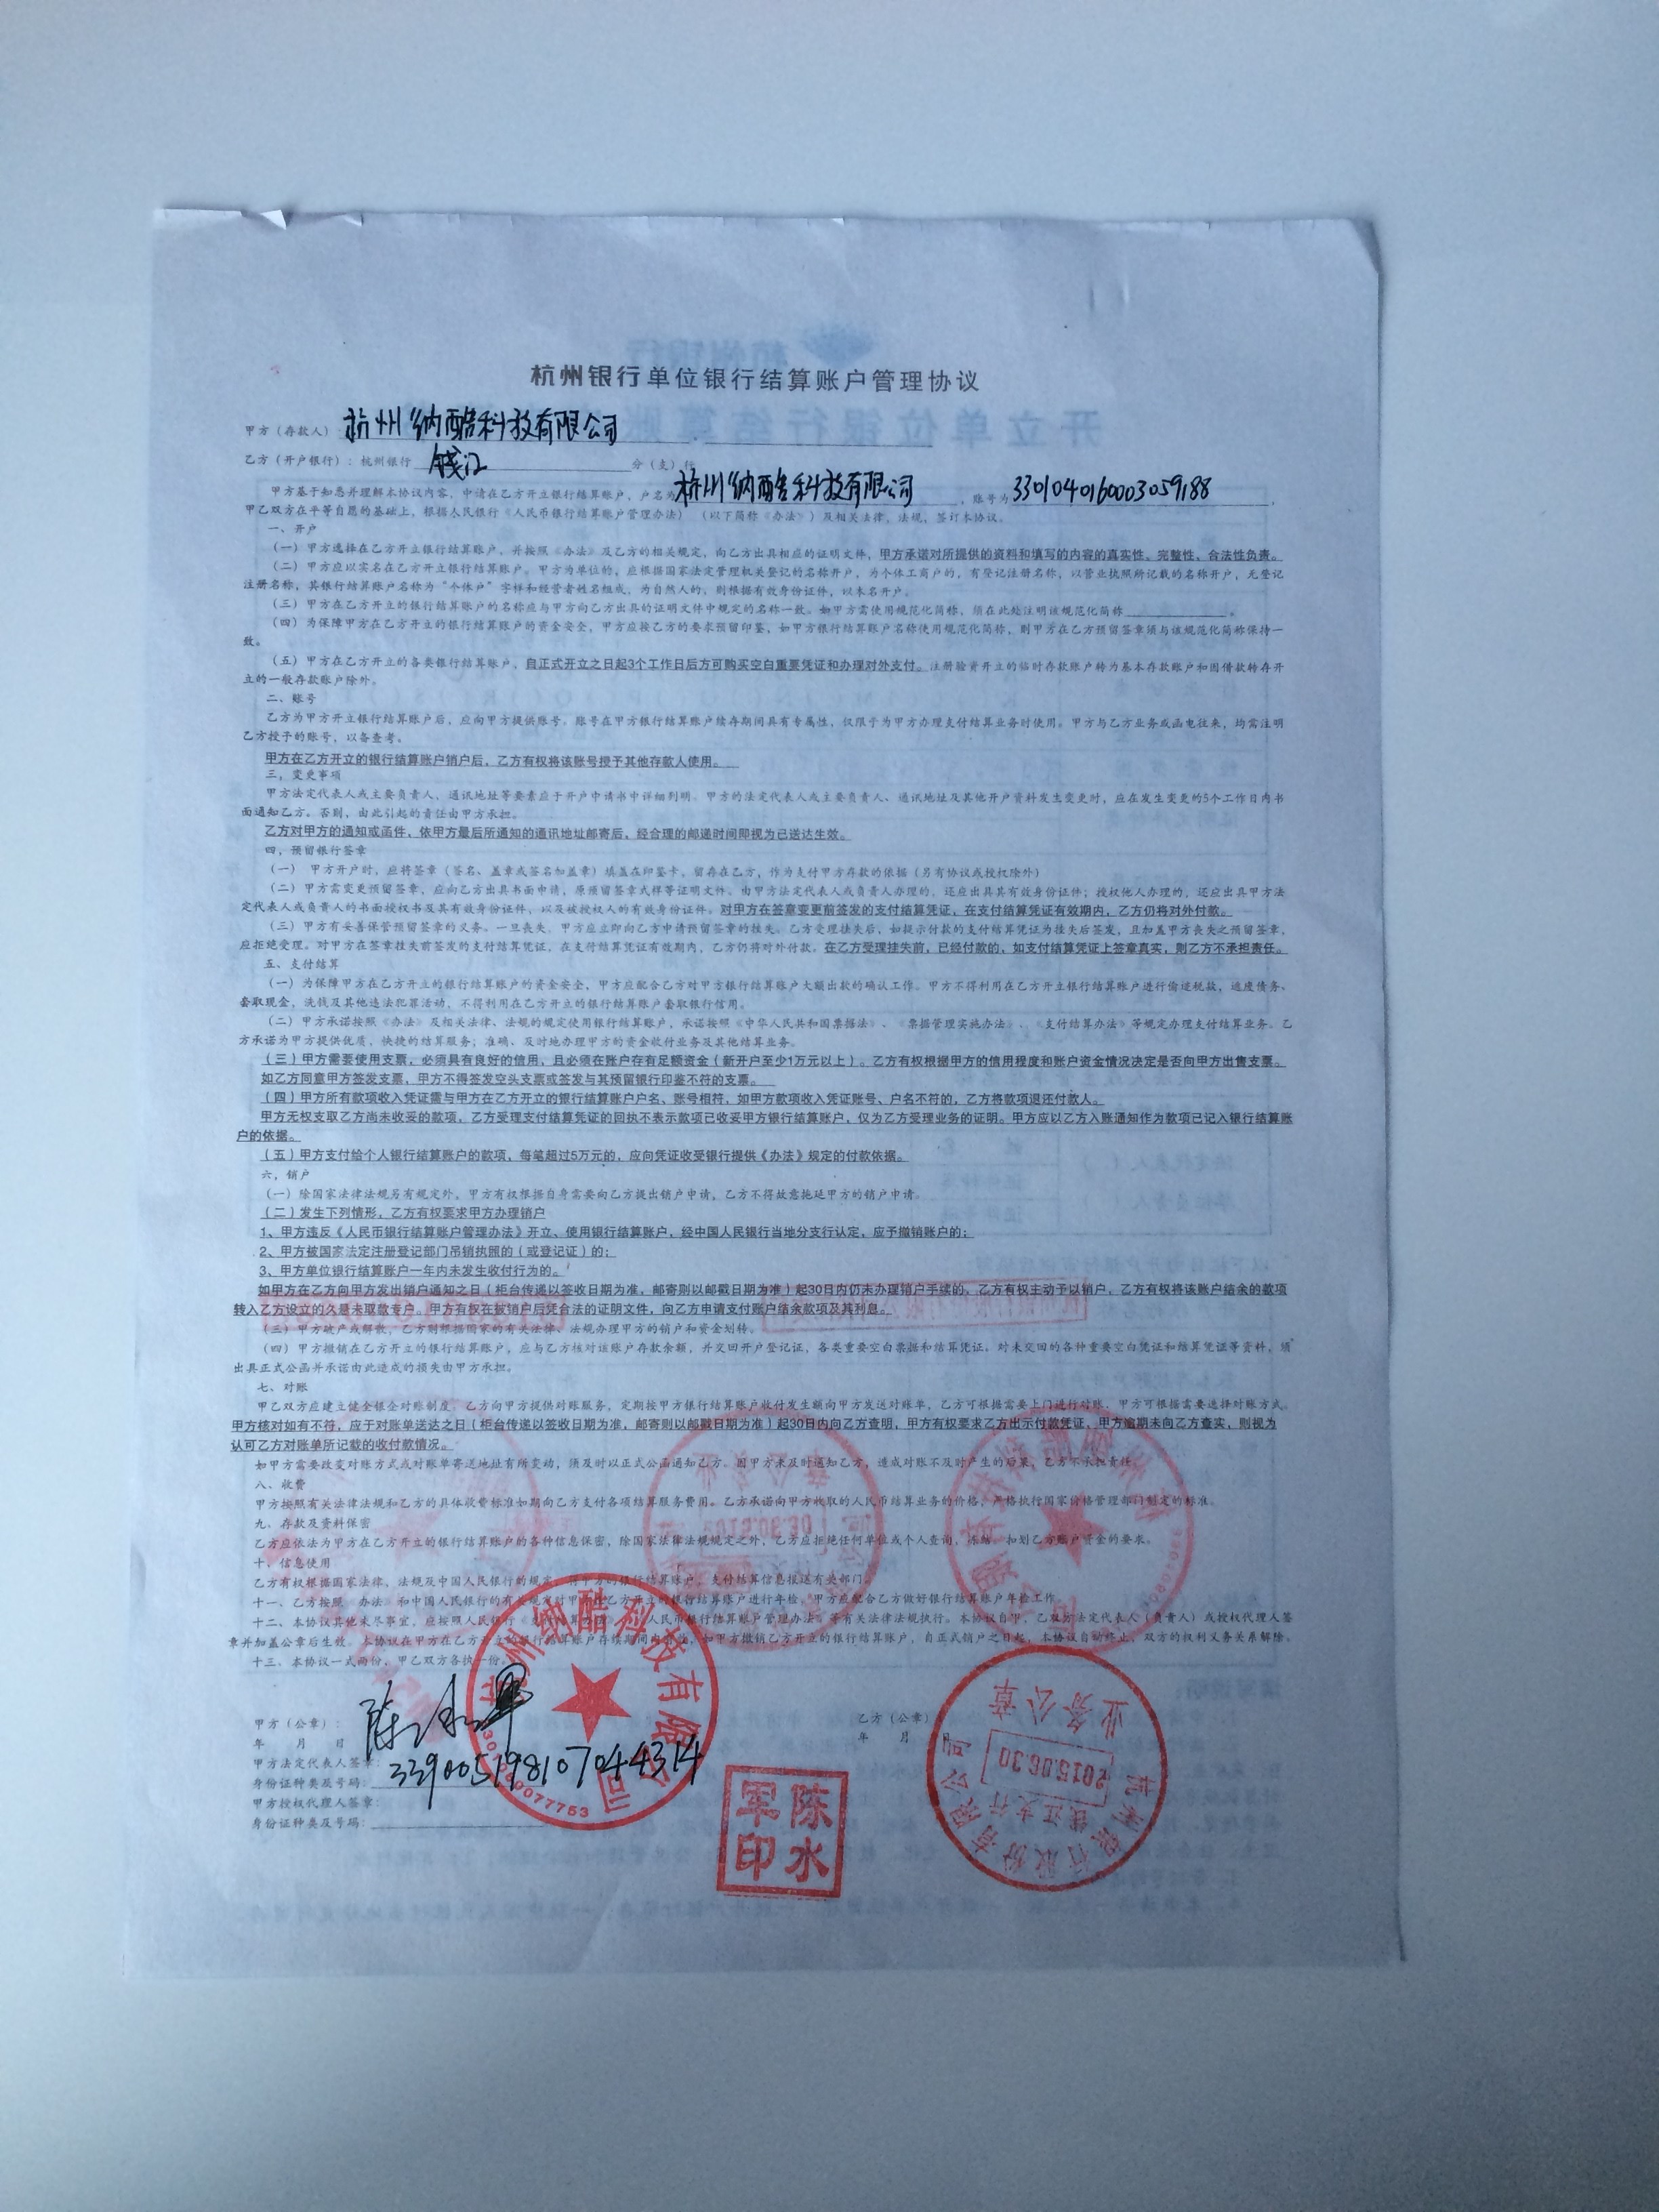 杭州银行单位银行结算账户管理协议
甲方（存款人）：杭州纳酷科技有限公司
乙方（开户银行）：杭州银行 钱江 分（支）行
甲方基于知悉并理解本协议内容，申请在乙方开立银行结算账户，户名为杭州纳酷科技有限公司，账号为3301040160003059188，
甲乙双方在平等自愿的基础上，根据人民银行《人民币银行结算账户管理办法》（以下简称《办法》）及相关法律、法规，签订本协议。
一、开户
（一）甲方选择在乙方开立银行结算账户，并按照《办法》及乙方的相关规定，向乙方出具相应的证明文件，甲方承诺对所提供的资料和填写的内容的真实性、完整性、合法性负责。
（二）甲方应以实名在乙方开立银行结算账户。甲方为单位的，应根据国家法定管理机关登记的名称开户，为个体工商户的，有登记注册名称，以营业执照所记载的名称开户，无登记
注册名称，其银行结算账户名称为“个体户”字样和经营者姓名组成，为自然人的，则根据有效身份证件，以本名开户。
（三）甲方在乙方开立的银行结算账户的名称应与甲方向乙方出具的证明文件中规定的名称一致。如甲方需使用规范化简称，须在此处注明该规范化简称
（四）为保障甲方在乙方开立的银行结算账户的资金安全，甲方应按乙方的要求预留印鉴，如甲方银行结算账户名称使用规范化简称，则甲方在乙方预留签章须与该规范化简称保持一
致。
（五）甲方在乙方开立的各类银行结算账户，自正式开立之日起3个工作日后方可购买空白重要凭证和办理对外支付。注册验资开立的临时存款账户转为基本存款账户和因借款转存开
立的一般存款账户除外。
二、账号
乙方为甲方开立银行结算账户后，应向甲方提供账号。账号在甲方银行结算账户续存期间具有专属性，仅限于为甲方办理支付结算业务时使用。甲方与乙方业务或函电往来，均需注明
乙方授予的账号，以备查考。
甲方在乙方开立的银行结算账户销户后，乙方有权将该账号授予其他存款人使用。
三、变更事项
甲方法定代表人或主要负责人、通讯地址等要素应于开户申请书中详细列明。甲方的法定代表人或主要负责人、通讯地址及其他开户资料发生变更时，应在发生变更的5个工作日内书
面通知乙方。否则，由此引起的责任由甲方承担。
乙方对甲方的通知或函件，依甲方最后所通知的通讯地址邮寄后，经合理的邮递时间即视为已送达生效。
四、预留银行签章
（一） 甲方开户时，应将签章（签名、盖章或签名加盖章）填盖在印鉴卡，留存在乙方，作为支付甲方存款的依据（另有协议或授权除外）
（二）甲方需变更预留签章，应向乙方出具书面申请，原预留签章式样等证明文件。由甲方法定代表人或负责人办理的，还应出具其有效身份证件；授权他人办理的，还应出具甲方法
定代表人或负责人的书面授权书及其有效身份证件，以及被授权人的有效身份证件。对甲方在签章变更前签发的支付结算凭证，在支付结算凭证有效期内，乙方仍将对外付款。
（三）甲方有妥善保管预留签章的义务。一旦丧失，甲方应立即向乙方申请预留签章的挂失。乙方受理挂失后，如提示付款的支付结算凭证为挂失后签发，且加盖甲方丧失之预留签章，
应拒绝受理。对甲方在签章挂失前签发的支付结算凭证，在支付结算凭证有效期内，乙方仍将对外付款。在乙方受理挂失前，已经付款的，如支付结算凭证上签章真实，则乙方不承担责任。
五、支付结算
（一）为保障甲方在乙方开立的银行结算账户的资金安全，甲方应配合乙方对甲方银行结算账户大额出款的确认工作。甲方不得利用在乙方开立银行结算账户进行偷逃税款，逃废债务、
套取现金，洗钱及其他违法犯罪活动，不得利用在乙方开立的银行结算账户套取银行信用。
（二）甲方承诺按照《办法》及相关法律、法规的规定使用银行结算账户，承诺按照《中华人民共和国票据法》、《票据管理实施办法》、《支付结算办法》等规定办理支付结算业务。乙
方承诺为甲方提供优质，快捷的结算服务；准确、及时地办理甲方的资金收付业务及其他结算业务。
（三）甲方需要使用支票，必须具有良好的信用，且必须在账户存有足额资金（新开户至少1万元以上）。乙方有权根据甲方的信用程度和账户资金情况决定是否向甲方出售支票。
如乙方同意甲方签发支票，甲方不得签发空头支票或签发与其预留银行印鉴不符的支票。
（四）甲方所有款项收入凭证需与甲方在乙方开立的银行结算账户户名、账号相符，如甲方款项收入凭证账号、户名不符的，乙方将款项退还付款人。
甲方无权支取乙方尚未收妥的款项，乙方受理支付结算凭证的回执不表示款项已收妥甲方银行结算账户，仅为乙方受理业务的证明。甲方应以乙方入账通知作为款项已记入银行结算账
户的依据。
（五）甲方支付给个人银行结算账户的款项，每笔超过5万元的，应向凭证收受银行提供《办法》规定的付款依据。
六、销户
（一）除国家法律法规另有规定外，甲方有权根据自身需要向乙方提出销户申请，乙方不得故意拖延甲方的销户申请。
（二）发生下列情形，乙方有权要求甲方办理销户
1、甲方违反《人民币银行结算账户管理办法》开立、使用银行结算账户，经中国人民银行当地分支行认定，应予撤销账户的；
2、甲方被国家法定注册登记部门吊销执照的（或登记证）的；
3、甲方单位银行结算账户一年内未发生收付行为的。
如甲方在乙方向甲方发出销户通知之日（柜台传递以签收日期为准，邮寄则以邮戳日期为准）起30日内仍未办理销户手续的，乙方有权主动予以销户，乙方有权将该账户结余的款项
转入乙方设立的久悬未取款专户。甲方有权在被销户后凭合法的证明文件，向乙方申请支付账户结余款项及其利息。
（三）甲方破产或解散，乙方则根据国家的有关法律、法规办理甲方的销户和资金划转。
（四）甲方撤销在乙方开立的银行结算账户，应与乙方核对该账户存款余额，并交回开户登记证，各类重要空白票据和结算凭证，对未交回的各种重要空白凭证和结算凭证等资料，须
出具正式公函并承诺由此造成的损失由甲方承担。
七、对账
甲乙双方应建立健全银企对账制度。乙方向甲方提供对账服务，定期按甲方银行结算账户收付发生额向甲方发送对账单，乙方可根据需要上门进行对账，甲方可根据需要选择对账方式。
甲方核对如有不符，应于对账单送达之日（柜台传递以签收日期为准，邮寄则以邮戳日期为准）起30日内向乙方查明，甲方有权要求乙方出示付款凭证，甲方逾期未向乙方查实，则视为
认可乙方对账单所记载的收付款情况。
如甲方需要改变对账方式或对账单寄送地址有所变动，须及时以正式公函通知乙方。因甲方未及时通知乙方，造成对账不及时产生的后果，乙方不承担责任。
八、收费
甲方按照有关法律法规和乙方的具体收费标准如期向乙方支付各项结算服务费用。乙方承诺向甲方收取的人民币结算业务的价格，严格执行国家价格管理部门制定的标准。
九、存款及资料保密
乙方应依法为甲方在乙方开立的银行结算账户的各种信息保密，除国家法律法规规定之外，乙方应拒绝任何单位或个人查询，冻结、扣划乙方账户资金的要求。
十、信息使用
乙方有权根据国家法律，法规及中国人民银行的规定，将甲方的银行结算账户，支付结算信息报送有关部门。
十一、乙方按照《办法》和中国人民银行的有关规定对甲方在乙方开立的银行结算账户进行年检，甲方应配合乙方做好银行结算账户年检工作。
十二、本协议其他未尽事宜，应按照人民银行 人民币银行结算账户管理办法》等有关法律法规执行。本协议自甲、乙双方法定代表人（负责人）或授权代理人签
章并加盖公章后生效。本协议在甲方在乙方开立的银行结算账户存续期间内有效，如甲方撤销乙方开立的银行结算账户，自正式销户之日起，本协议自动终止，双方的权利义务关系解除。
十三、本协议一式两份，甲乙双方各执一份。
甲方（公章）： 乙方（公章）
年 月 日 年 月
甲方法定代表人签章：
身份证种类及号码：339005198107044314
甲方授权代理人签章：
身份证种类及号码：
杭州纳酷科技有限公司
陈水军印
杭州银行股份有限公司
钱江支行
2015.06.30
业务公章